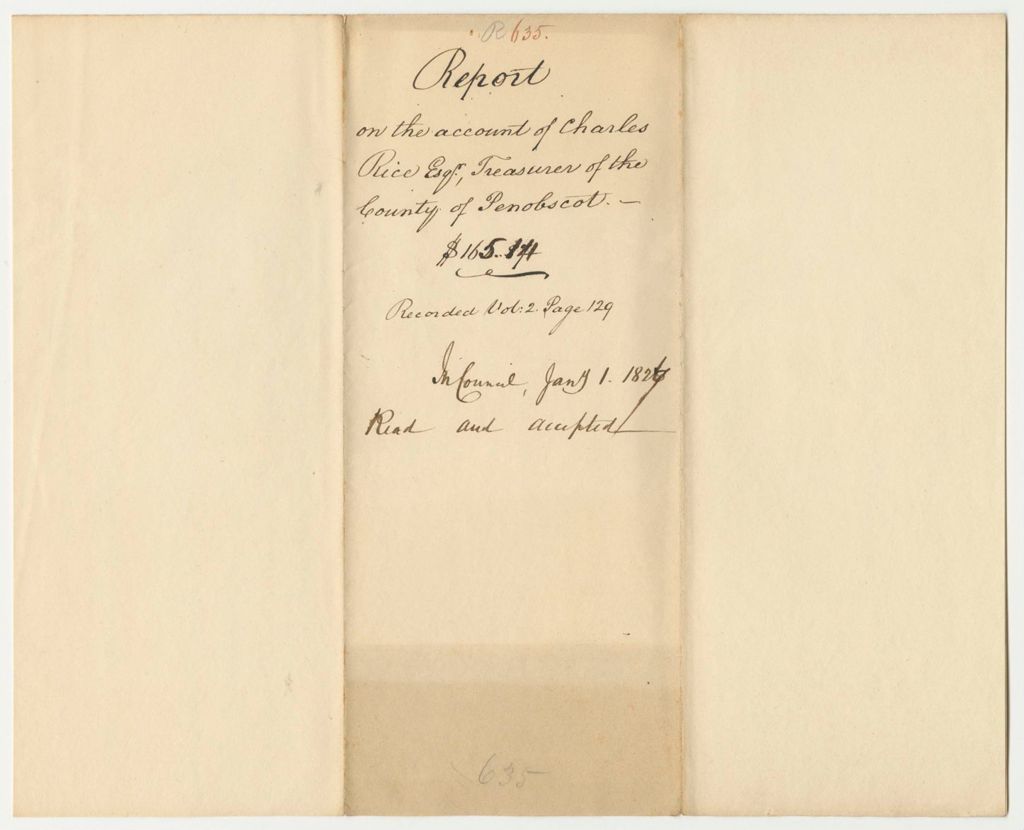 R 635.
Report
on the account of Charles
Rice Esqr, Treasurer of the
County of Penobscot. —
$165.14
Recorded Vol: 2. Page 129
In Council, Jany 1.
Read and accepted
635